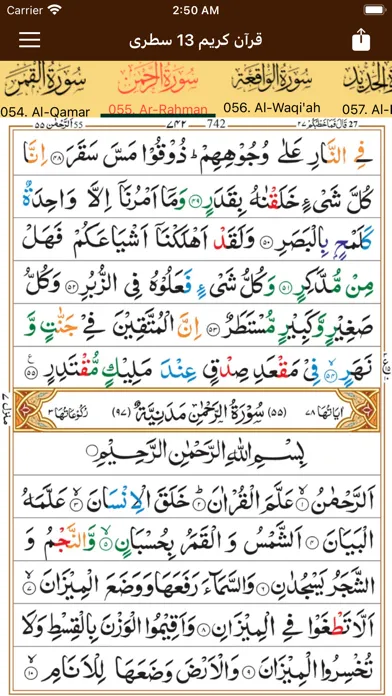 Carrier 2:50 AM
قرآن کریم 13 سطری
سُورَةُ القَمَرِ سُورَةُ الرَّحْمٰن سُورَةُ الْوَاقِعَة
054. Al-Qamar 055. Ar-Rahman 056. Al-Waqi'ah 057. Al-
الرَّحْمٰن ٥٥ 55 ٧٤٢ 742 قَالَ فَمَا خَطْبُكُمْ ٢٧ 27
فِي النَّارِ عَلٰى وُجُوْهِهِمْ ؕ ذُوْقُوْا مَسَّ سَقَرَ ﴿۴۸﴾ اِنَّا
كُلَّ شَیْءٍ خَلَقْنٰهُ بِقَدَرٍ ﴿۴۹﴾ وَمَاۤ اَمْرُنَاۤ اِلَّا وَاحِدَةٌ
كَلَمْحٍۭ بِالْبَصَرِ ﴿۵۰﴾ وَلَقَدْ اَهْلَكْنَاۤ اَشْيَاعَكُمْ فَهَلْ
مِنْ مُّدَّكِرٍ ﴿۵۱﴾ وَكُلُّ شَیْءٍ فَعَلُوْهُ فِي الزُّبُرِ ﴿۵۲﴾ وَكُلُّ
صَغِيْرٍ وَّكَبِيْرٍ مُّسْتَطَرٌ ﴿۵۳﴾ اِنَّ الْمُتَّقِيْنَ فِيْ جَنّٰتٍ وَّ
نَهَرٍ ﴿۵۴﴾ فِيْ مَقْعَدِ صِدْقٍ عِنْدَ مَلِيْكٍ مُّقْتَدِرٍ ﴿۵۵﴾
اٰيَاتُهَا ٧٨ (۵۵) سُوْرَةُ الرَّحْمٰنِ مَدَنِيَّةٌ (۹۷) رُكُوْعَاتُهَا ٣
بِسْمِ اللّٰهِ الرَّحْمٰنِ الرَّحِيْمِ
اَلرَّحْمٰنُ ﴿۱﴾ عَلَّمَ الْقُرْاٰنَ ﴿۲﴾ خَلَقَ الْاِنْسَانَ ﴿۳﴾ عَلَّمَهُ
الْبَيَانَ ﴿۴﴾ اَلشَّمْسُ وَ الْقَمَرُ بِحُسْبَانٍ ﴿۵﴾ وَّالنَّجْمُ وَ
الشَّجَرُ يَسْجُدٰنِ ﴿۶﴾ وَالسَّمَآءَ رَفَعَهَا وَوَضَعَ الْمِيْزَانَ ﴿۷﴾
اَلَّا تَطْغَوْا فِي الْمِيْزَانِ ﴿۸﴾ وَاَقِيْمُوا الْوَزْنَ بِالْقِسْطِ وَلَا
تُخْسِرُوا الْمِيْزَانَ ﴿۹﴾ وَالْاَرْضَ وَضَعَهَا لِلْاَنَامِ ﴿۱۰﴾
منزل ٧